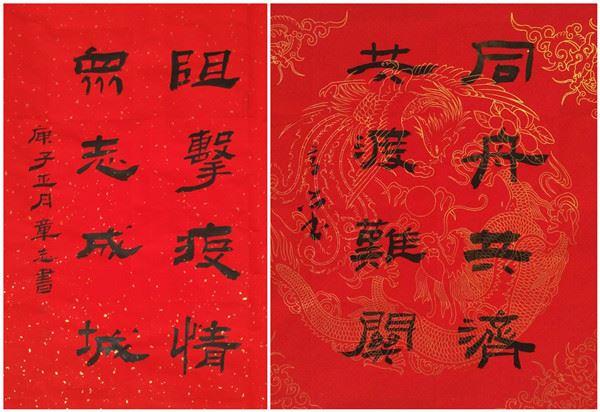 阻擊疫情
眾志成城
庚子正月章書
同舟共濟
共渡難關